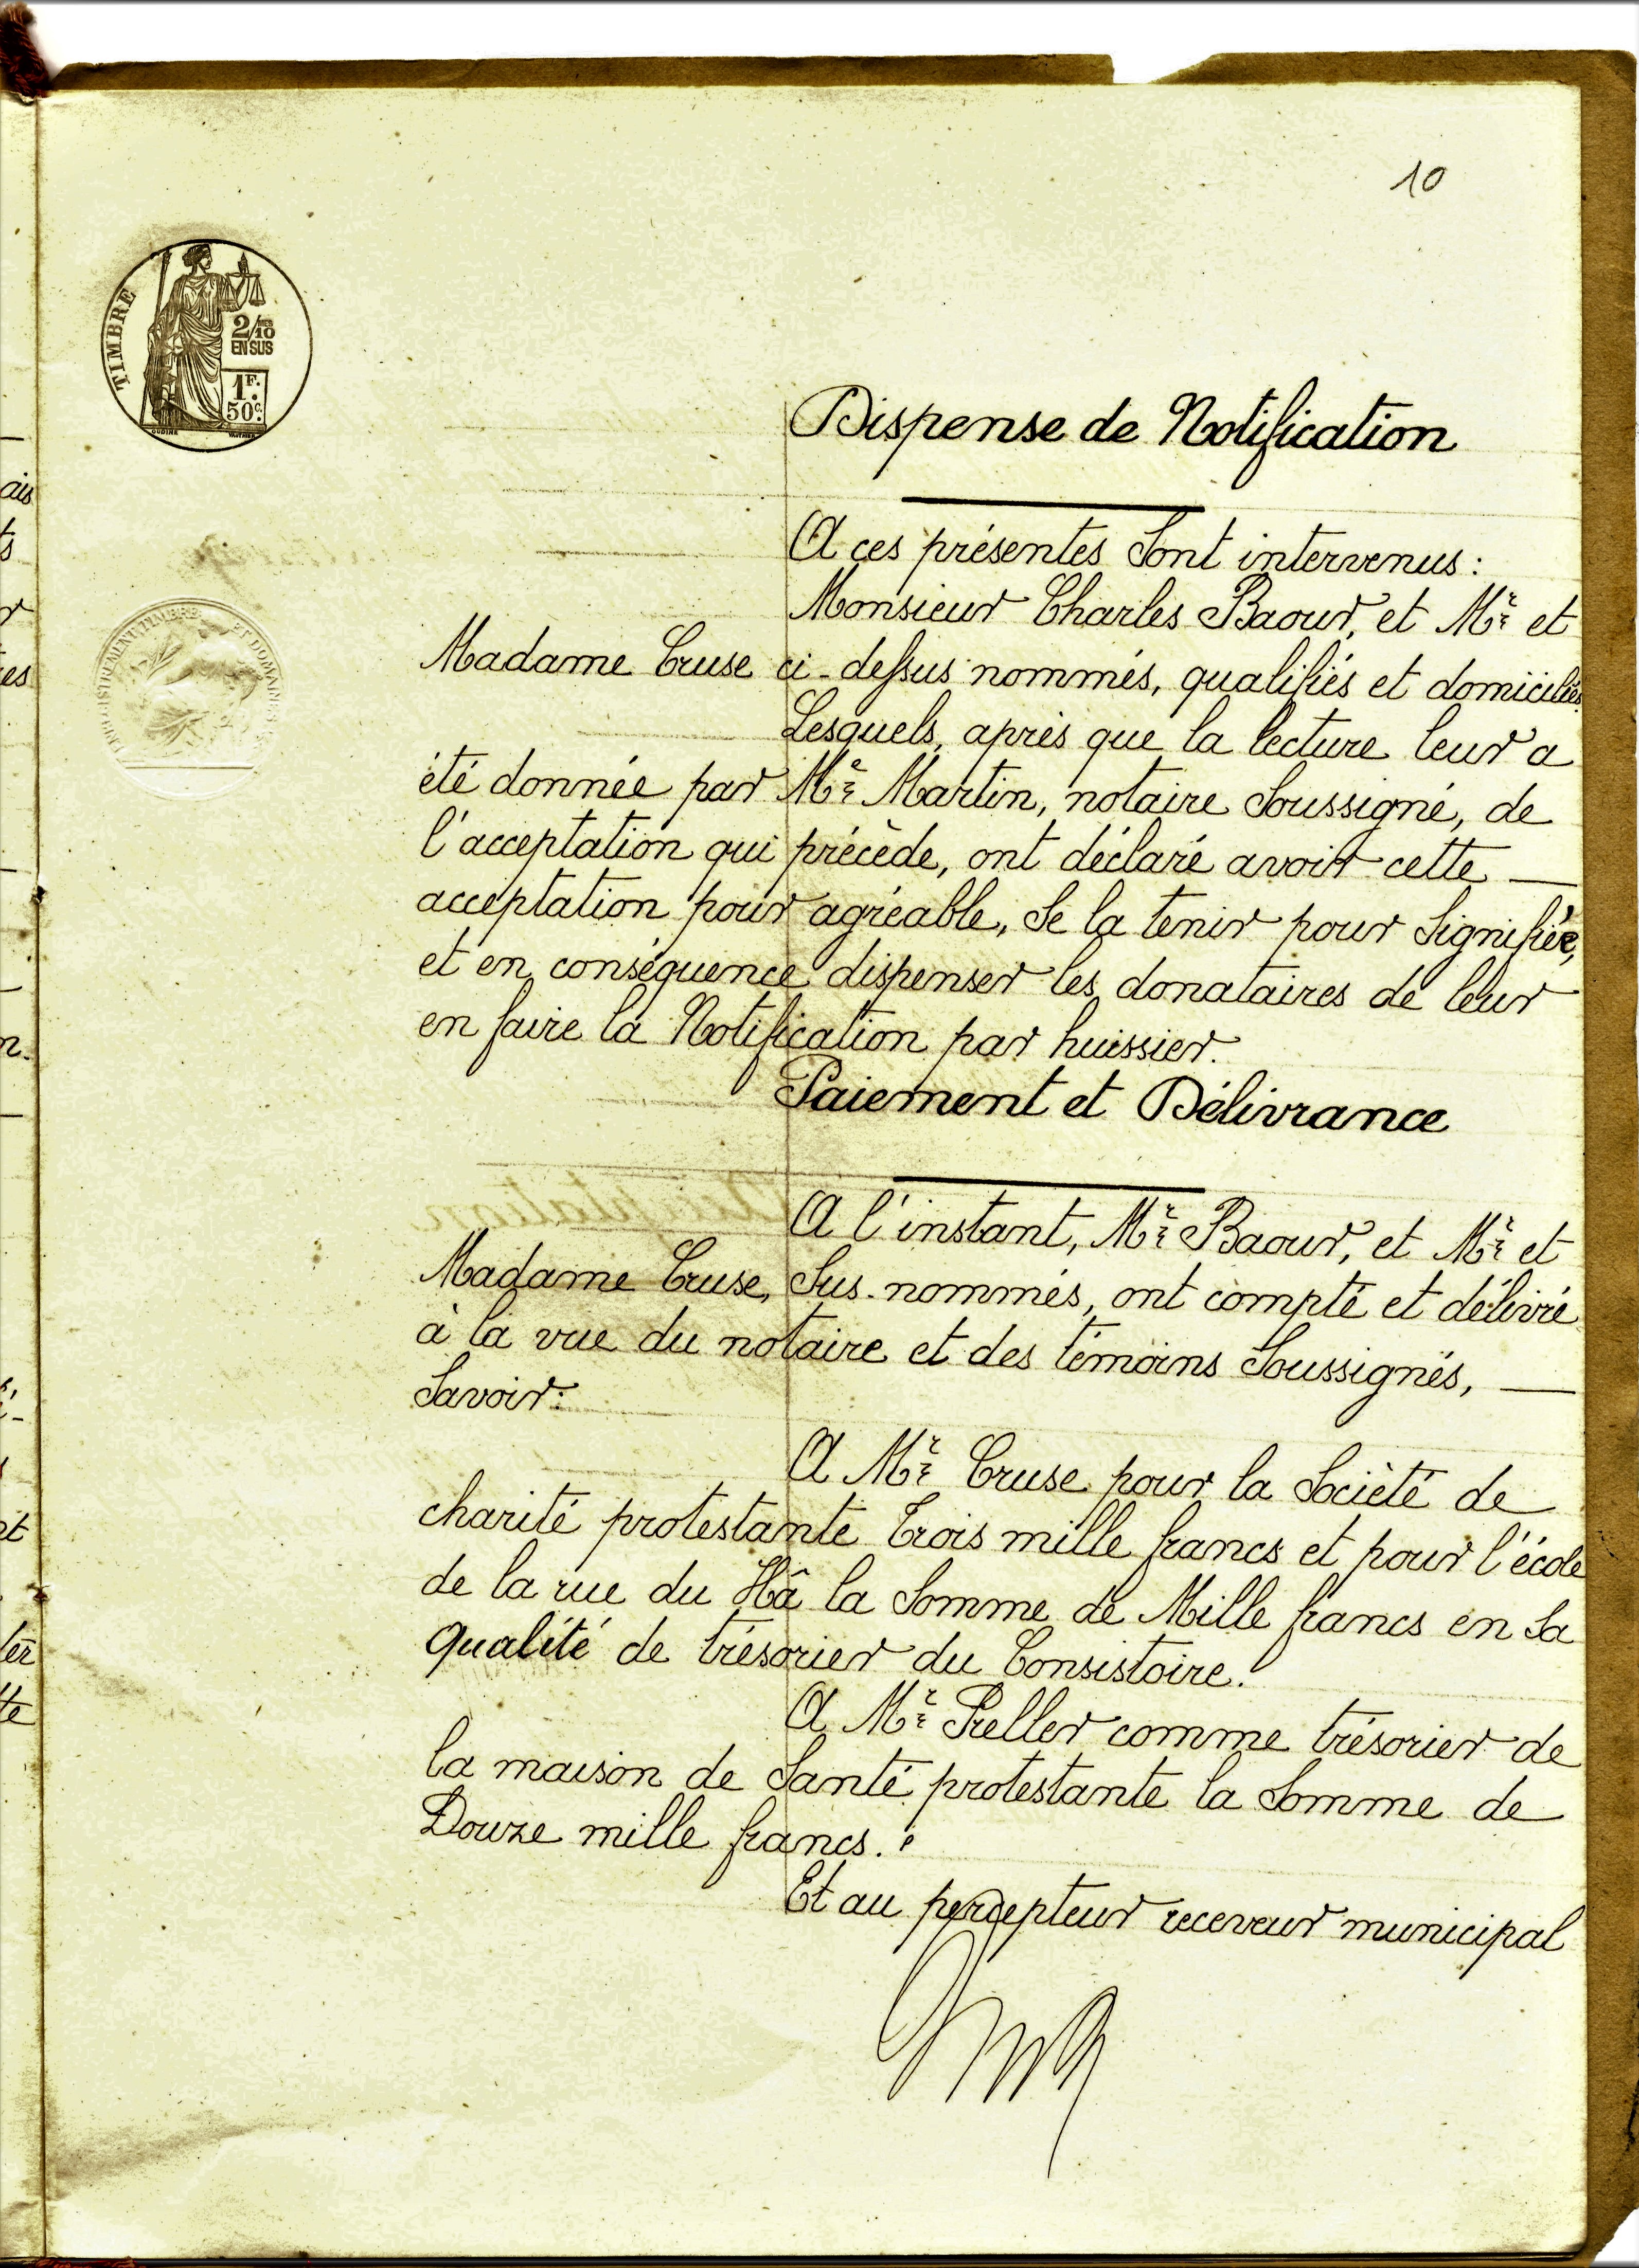 10
TIMBRE
2/10
EN SUS
1F.
50c.
Dispense de Notification
A ces présentes sont intervenus :
Monsieur Charles Baour, et Mr et
Madame Cruse ci-dessus nommés, qualifiés et domiciliés
Lesquels, après que la lecture leur a
été donnée par Me Martin, notaire soussigné, de
l'acceptation qui précède, ont déclaré avoir cette —
acceptation pour agréable, se la tenir pour signifiée,
et en conséquence dispenser les donataires de leur
en faire la Notification par huissier.
Paiement et Délivrance
A l'instant, Mr Baour, et Mr et
Madame Cruse, sus-nommés, ont compté et délivré
à la vue du notaire et des témoins soussignés, —
savoir :
A Mr Cruse pour la société de
charité protestante Trois mille francs et pour l'école
de la rue du Hâ la somme de Mille francs en sa
qualité de trésorier du Consistoire.
A Mr Preller comme trésorier de
la maison de santé protestante la somme de
Douze mille francs.
Et au percepteur receveur municipal